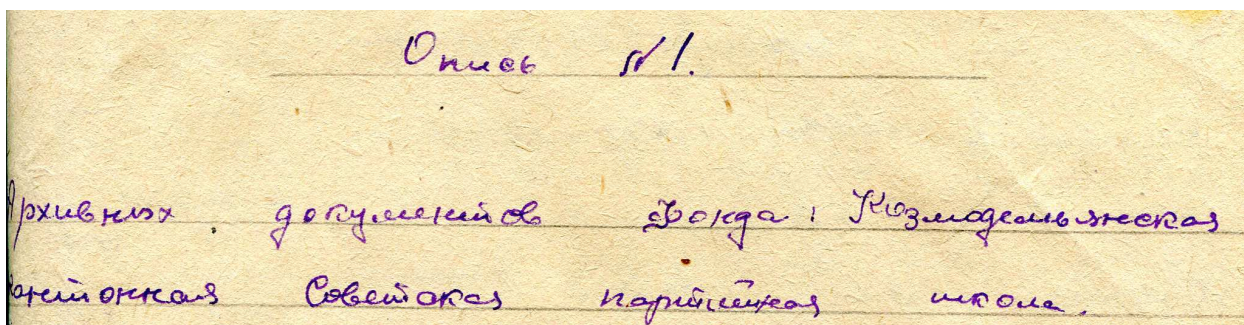 Опись №1.
Архивных документов Фонда: Козмодемьянская
кантонная Советская партийная школа.